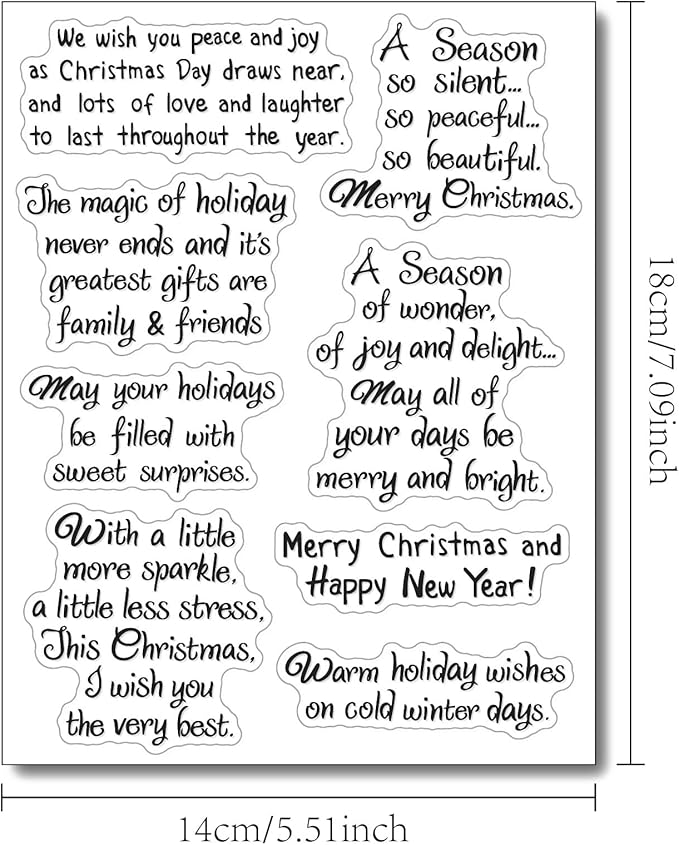 We wish you peace and joy
as Christmas Day draws near,
and lots of love and laughter
to last throughout the year.
A Season
so silent...
so peaceful...
so beautiful.
Merry Christmas.
The magic of holiday
never ends and it's
greatest gifts are
family & friends
A Season
of wonder,
of joy and delight...
May all of
your days be
merry and bright.
May your holidays
be filled with
sweet surprises.
With a little
more sparkle,
a little less stress,
This Christmas,
I wish you
the very best.
Merry Christmas and
Happy New Year!
Warm holiday wishes
on cold winter days.
18cm/7.09inch
14cm/5.51inch